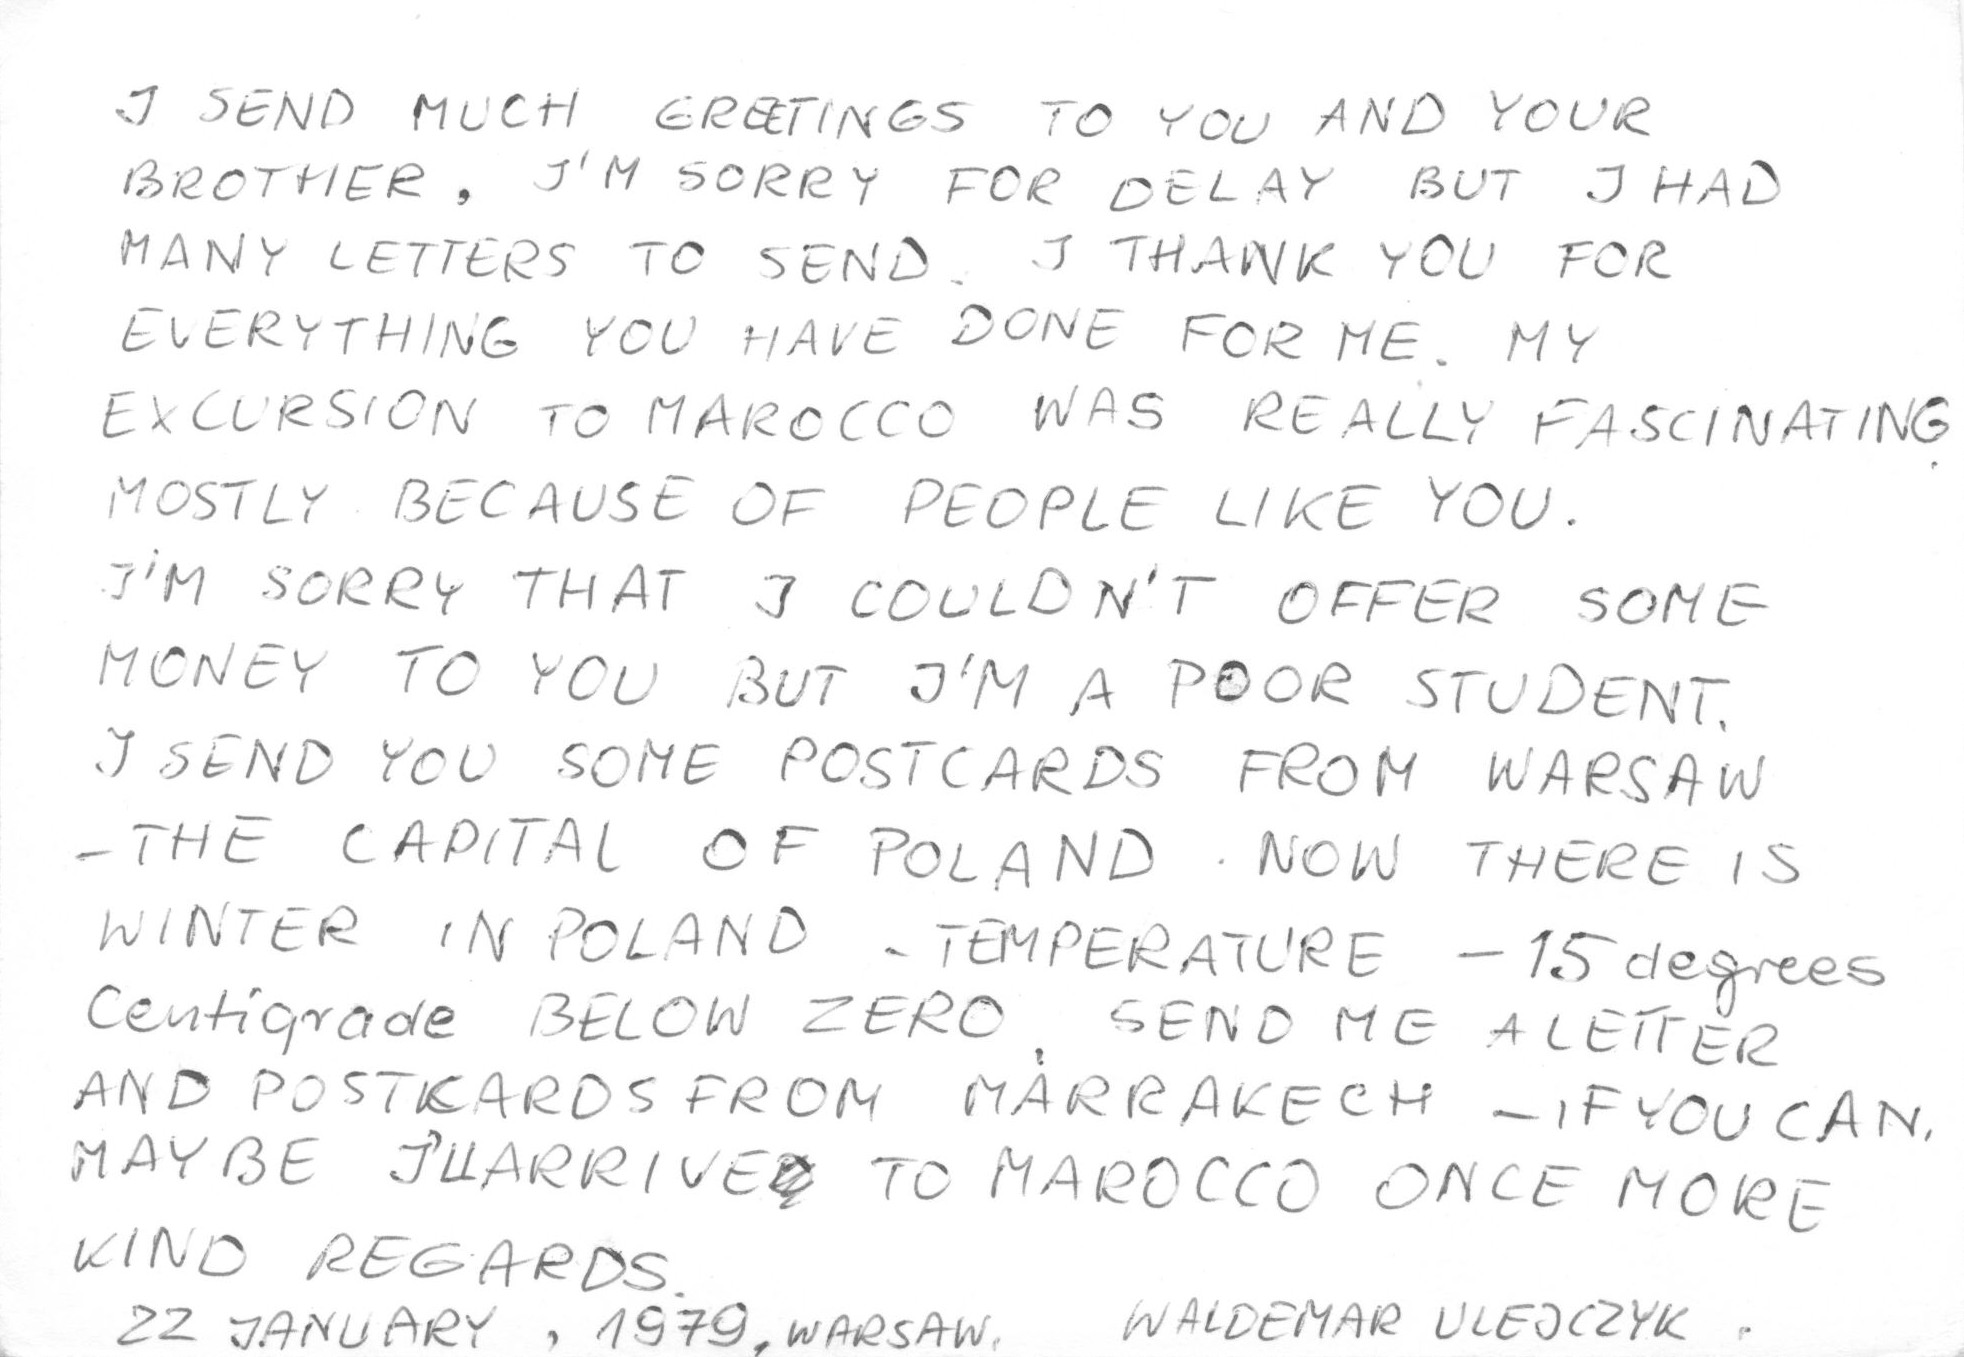 I SEND MUCH GREETINGS TO YOU AND YOUR
BROTHER, I'M SORRY FOR DELAY BUT I HAD
MANY LETTERS TO SEND. I THANK YOU FOR
EVERYTHING YOU HAVE DONE FOR ME. MY
EXCURSION TO MAROCCO WAS REALLY FASCINATING
MOSTLY BECAUSE OF PEOPLE LIKE YOU.
I'M SORRY THAT I COULDN'T OFFER SOME
MONEY TO YOU BUT I'M A POOR STUDENT.
I SEND YOU SOME POSTCARDS FROM WARSAW
- THE CAPITAL OF POLAND. NOW THERE IS
WINTER IN POLAND - TEMPERATURE - 15 degrees
Centigrade BELOW ZERO. SEND ME A LETTER
AND POSTKARDS FROM MARRAKECH - IF YOU CAN.
MAYBE I'LL ARRIVE TO MAROCCO ONCE MORE
KIND REGARDS.
22 JANUARY, 1979, WARSAW. WALDEMAR ULEJCZYK.